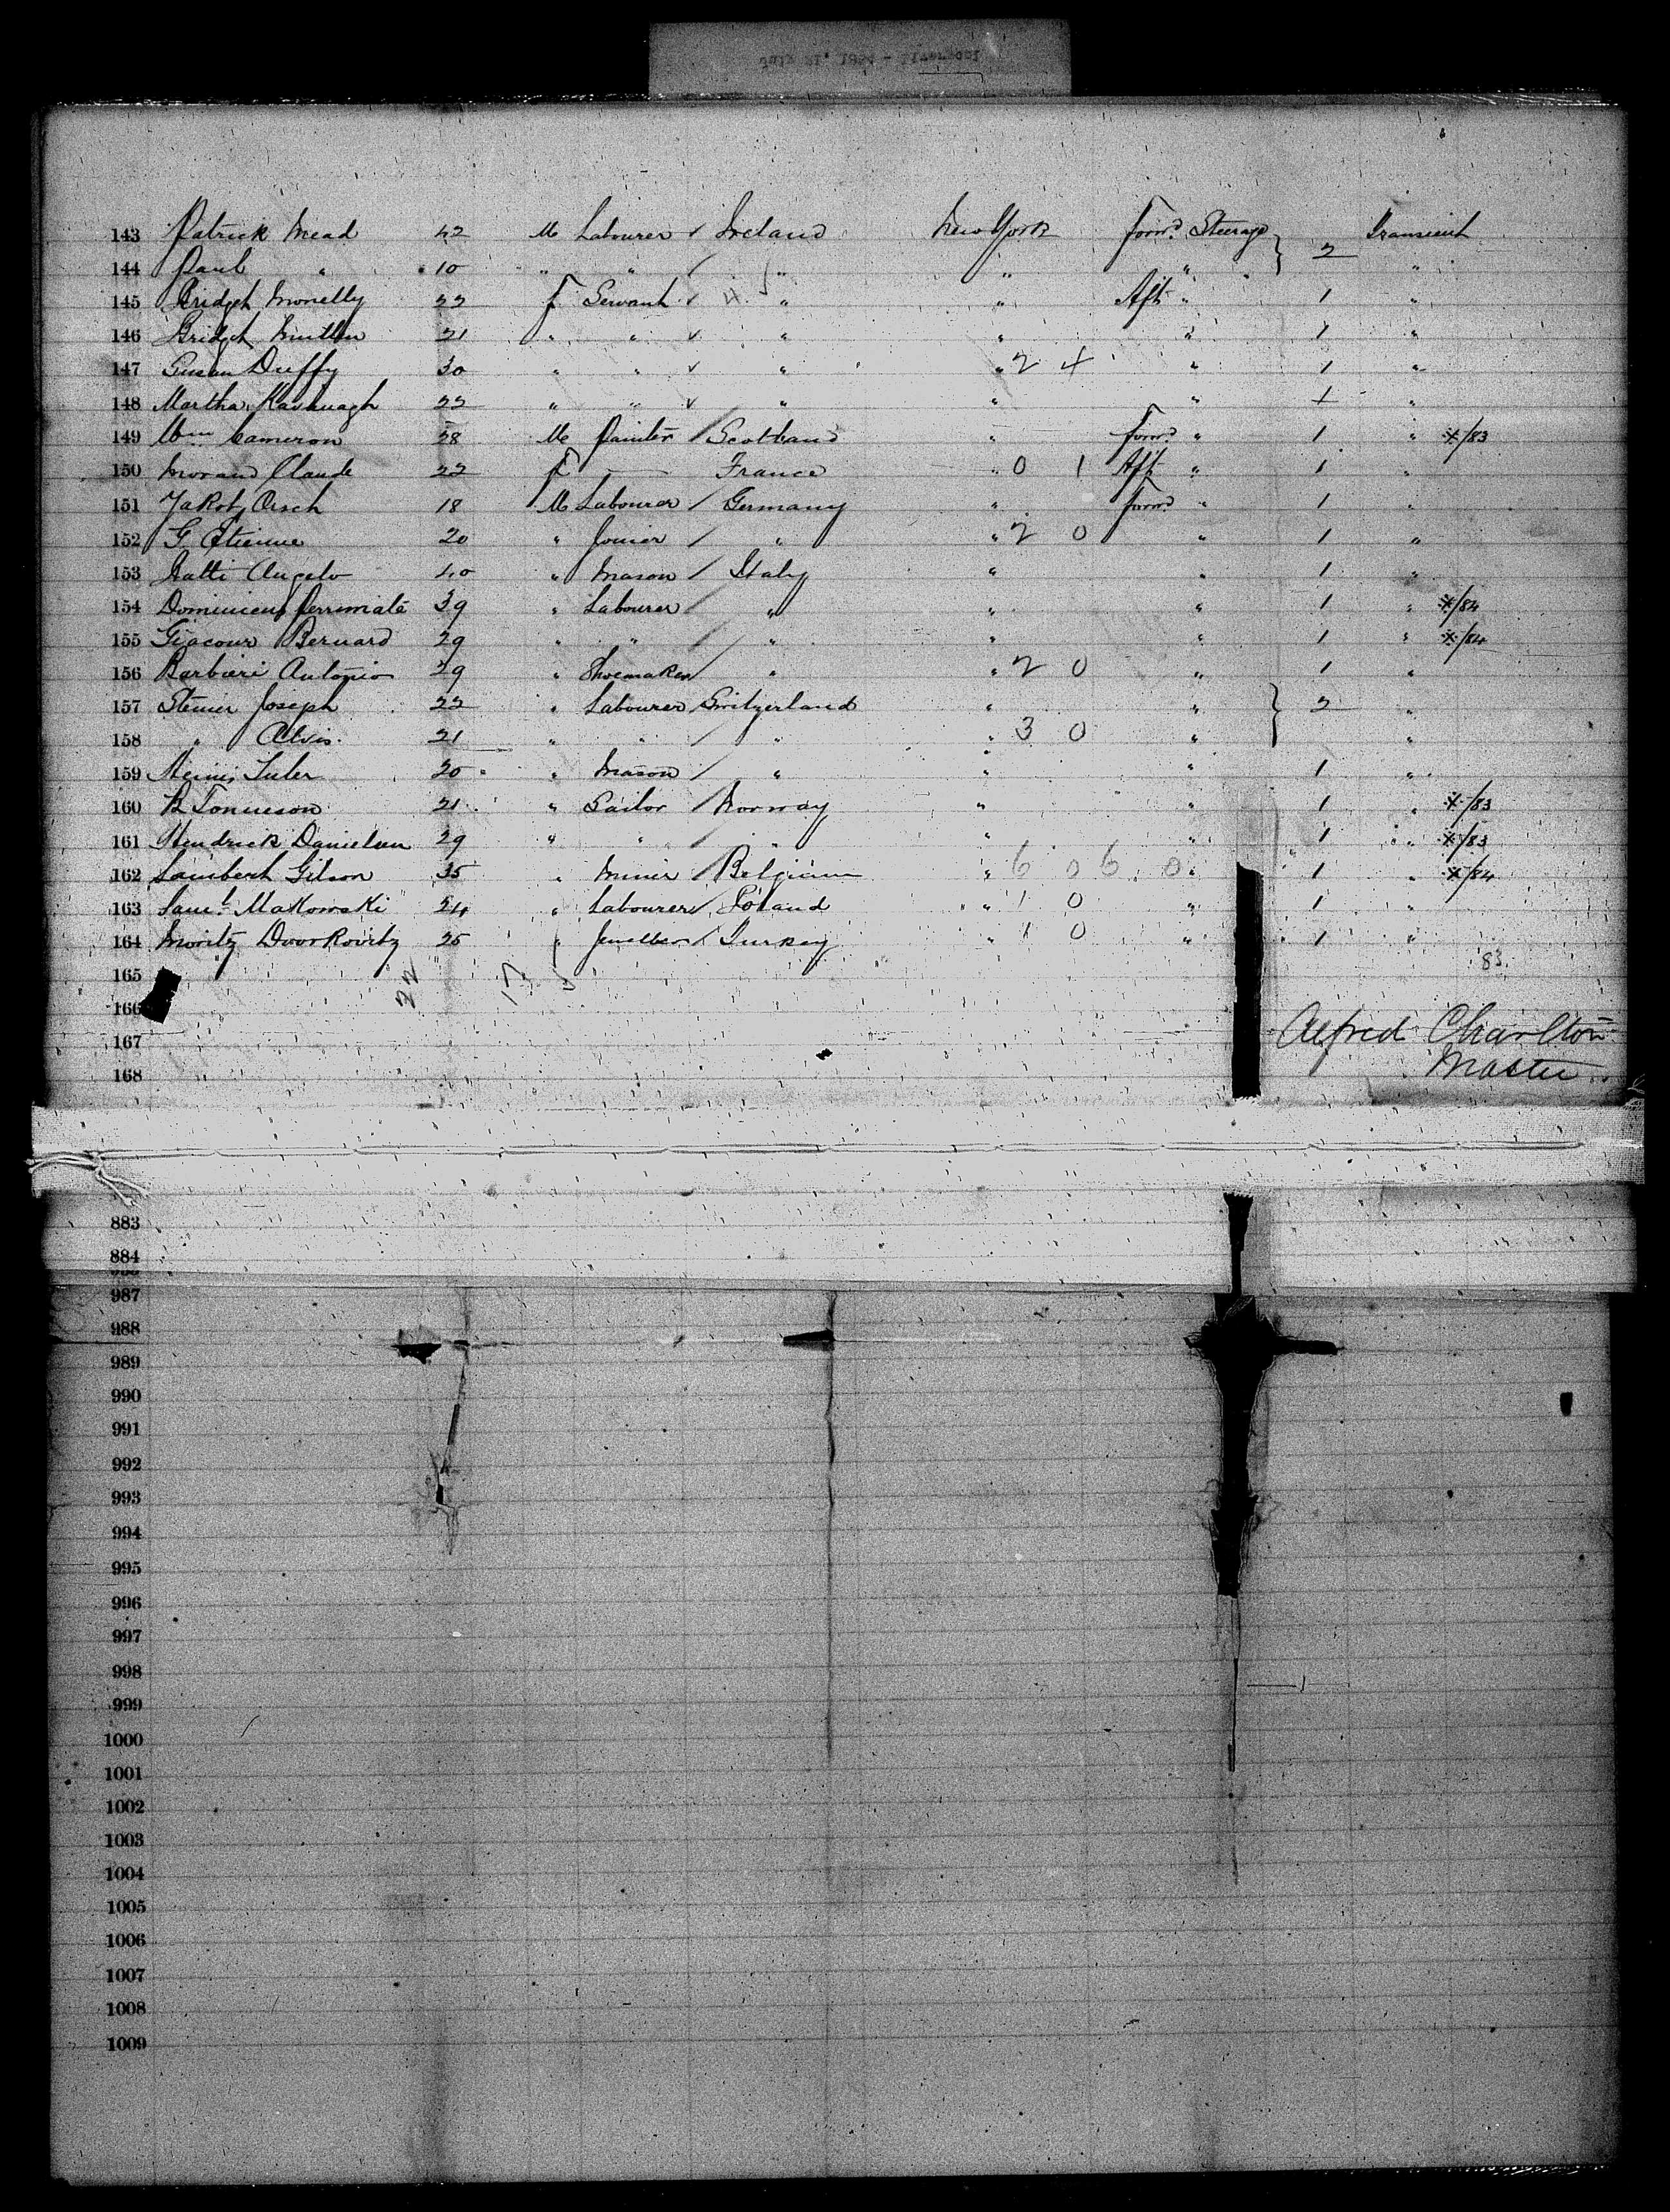 143 Patrick Mead 42 M Labourer Ireland New York Forwd Steerage 2 Transient
144 Paul " 10 " " " " " "
145 Bridget Monelly 22 F Servant 4 " " Aft " 1 "
146 Bridget 21 " " " " " 1 "
147 Susan Duffy 30 " " " " 2 4 " 1 "
148 Martha Kavanagh 22 " " " " " 1 "
149 Wm Cameron 28 M Painter Scotland " Forwd " 1 " X/83
150 Morand Claude 22 F — France " 0 1 Aft " 1 "
151 Jakob Orsch 18 M Labourer Germany " Forwd " 1 "
152 G. Etienne 20 " Joiner " " 2 0 " 1 "
153 Angelo 40 " Mason Italy " " 1 "
154 39 " Labourer " " " 1 " X/84
155 Giacour Bernard 29 " " " " " 1 " X/84
156 Barbieri Antonio 29 " Shoemaker " " 2 0 " 1 "
157 Steiner Joseph 22 " Labourer Switzerland " " 2 "
158 " Alvis 21 " " " " 3 0 " "
159 Suter 20 " Mason " " " 1 "
160 B Tonneson 21 " Sailor Norway " " 1 " X/83
161 Hendrick Danielsen 29 " " " " " 1 " X/83
162 Lambert Gilson 35 " Miner Belgium " 6 0 6 0 " 1 " X/84
163 Saml Makowski 24 " Labourer Poland " 1 0 " 1 "
164 Moritz Dvorkovitz 25 " Jeweller Turkey " 1 0 " 1 "
165 22 17 5 83
166
167 Alfred Charlton
168 Master
883
884
987
988
989
990
991
992
993
994
995
996
997
998
999
1000
1001
1002
1003
1004
1005
1006
1007
1008
1009